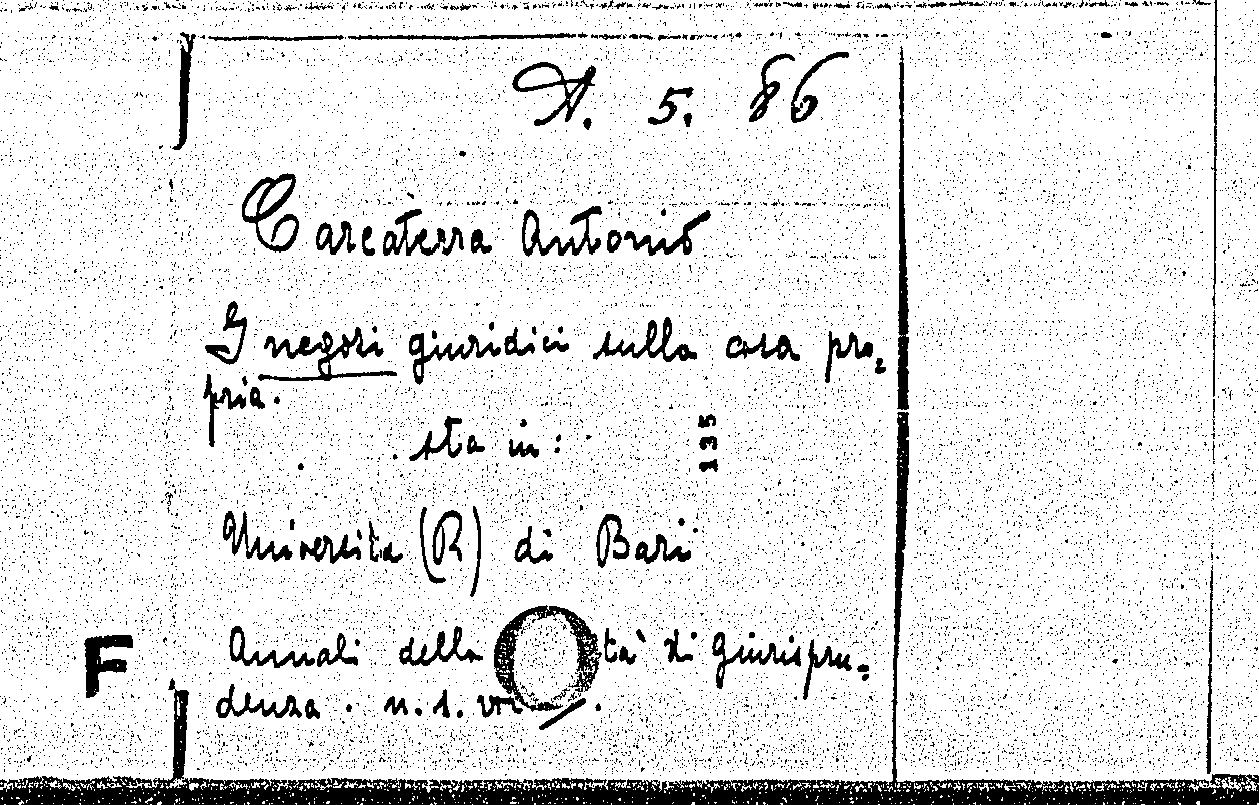 A. 5. 86
Carcaterra Antonio
I negozi giuridici sulla cosa pro=
pria.
sta in:
135
Università (R) di Bari
Annali della tà di Giurispru=
denza. n. s. vol
F